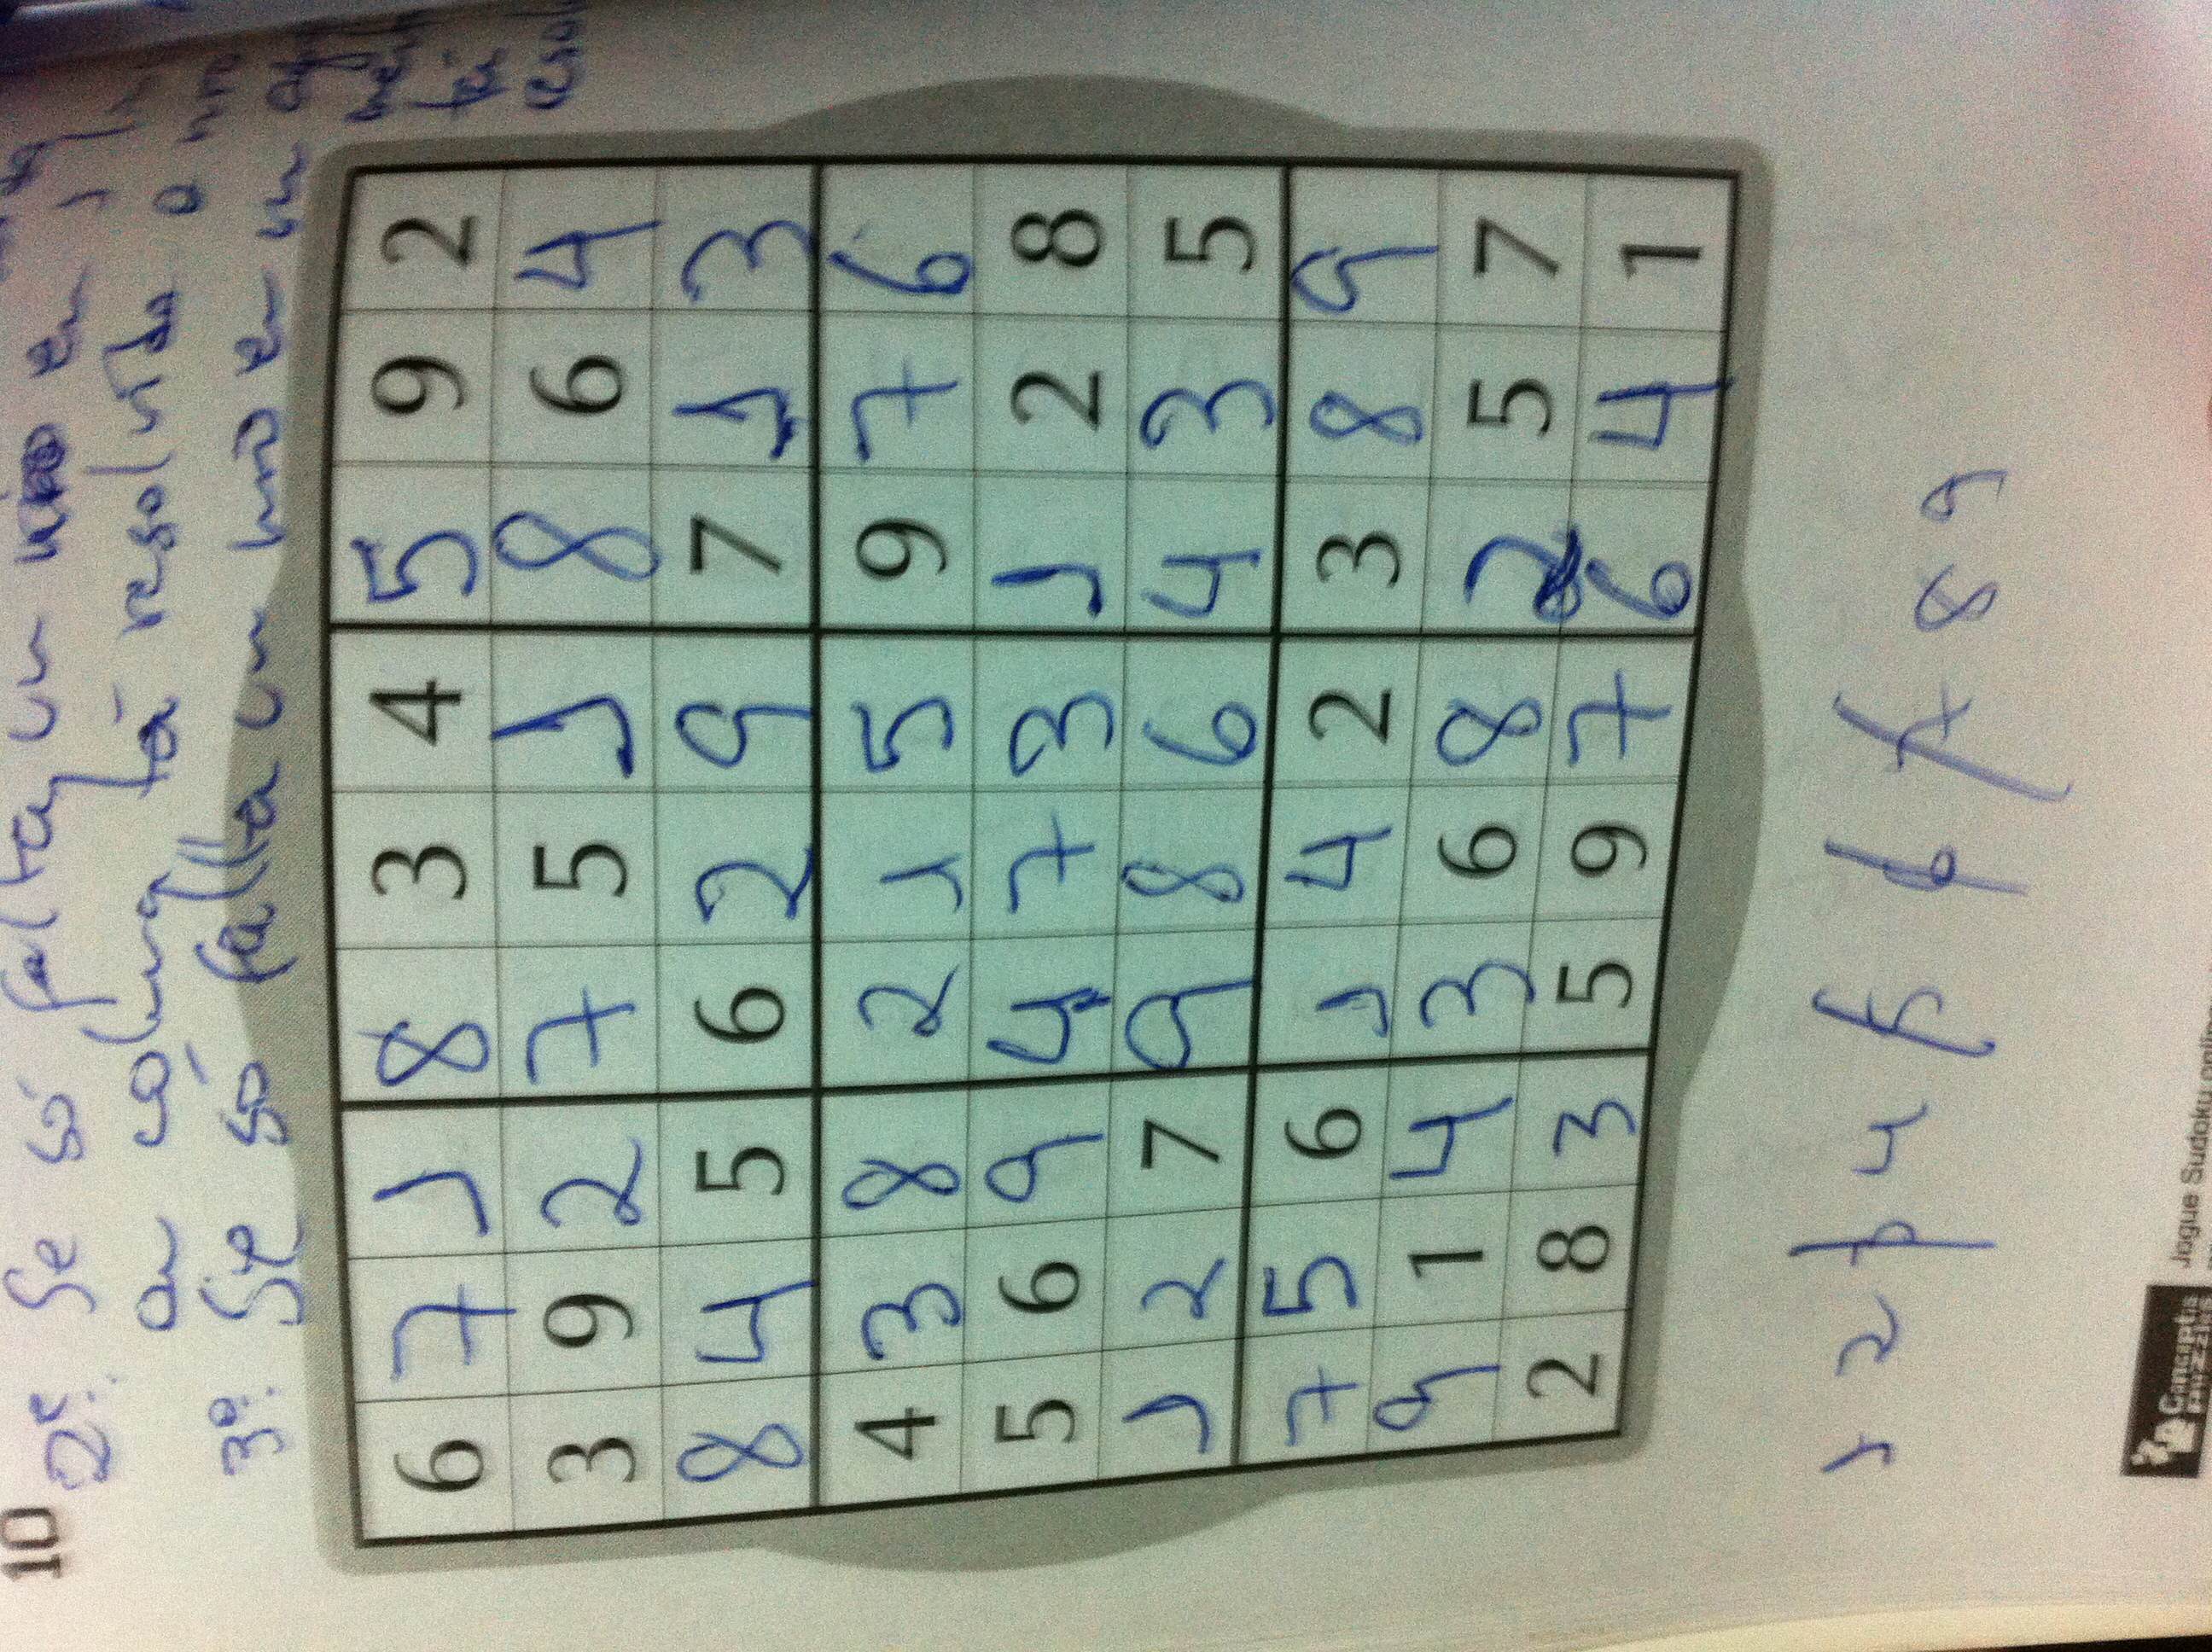 10
2º. Se só falta um nro em 1
ou coluna tá resolvido o nro
3º. Se só falta um nro em um
tá
6 7 1 8 3 4 5 9 2
3 9 2 7 5 1 8 6 4
8 4 5 6 2 9 7 1 3
4 3 8 2 1 5 9 7 6
5 6 9 4 7 3 1 2 8
1 2 7 9 8 6 4 3 5
7 5 6 1 4 2 3 8 9
9 1 4 3 6 8 2 5 7
2 8 3 5 9 7 6 4 1
1 2 3 4 5 6 7 8 9
Conceptis
Puzzles
Jogue Sudoku